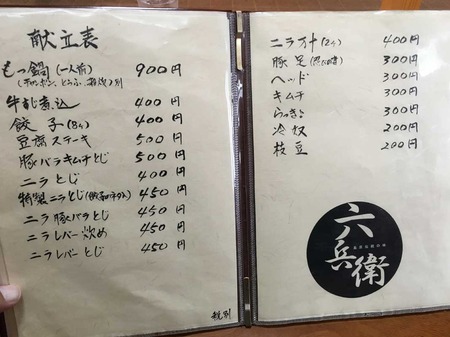 献立表
もつ鍋(一人前) 900円
(チャンポン、とうふ、雑炊)別
牛すじ煮込 400円
餃子(8ケ) 400円
豆腐ステーキ 500円
豚バラキムチとじ 500円
ニラとじ 400円
特製ニラとじ 450円
ニラ豚バラとじ 450円
ニラレバー炒め 450円
ニラレバーとじ 450円
税別
ニラ 400円
豚足 300円
ヘッド 300円
キムチ 300円
らっきょ 300円
冷奴 200円
枝豆 200円
六兵衛